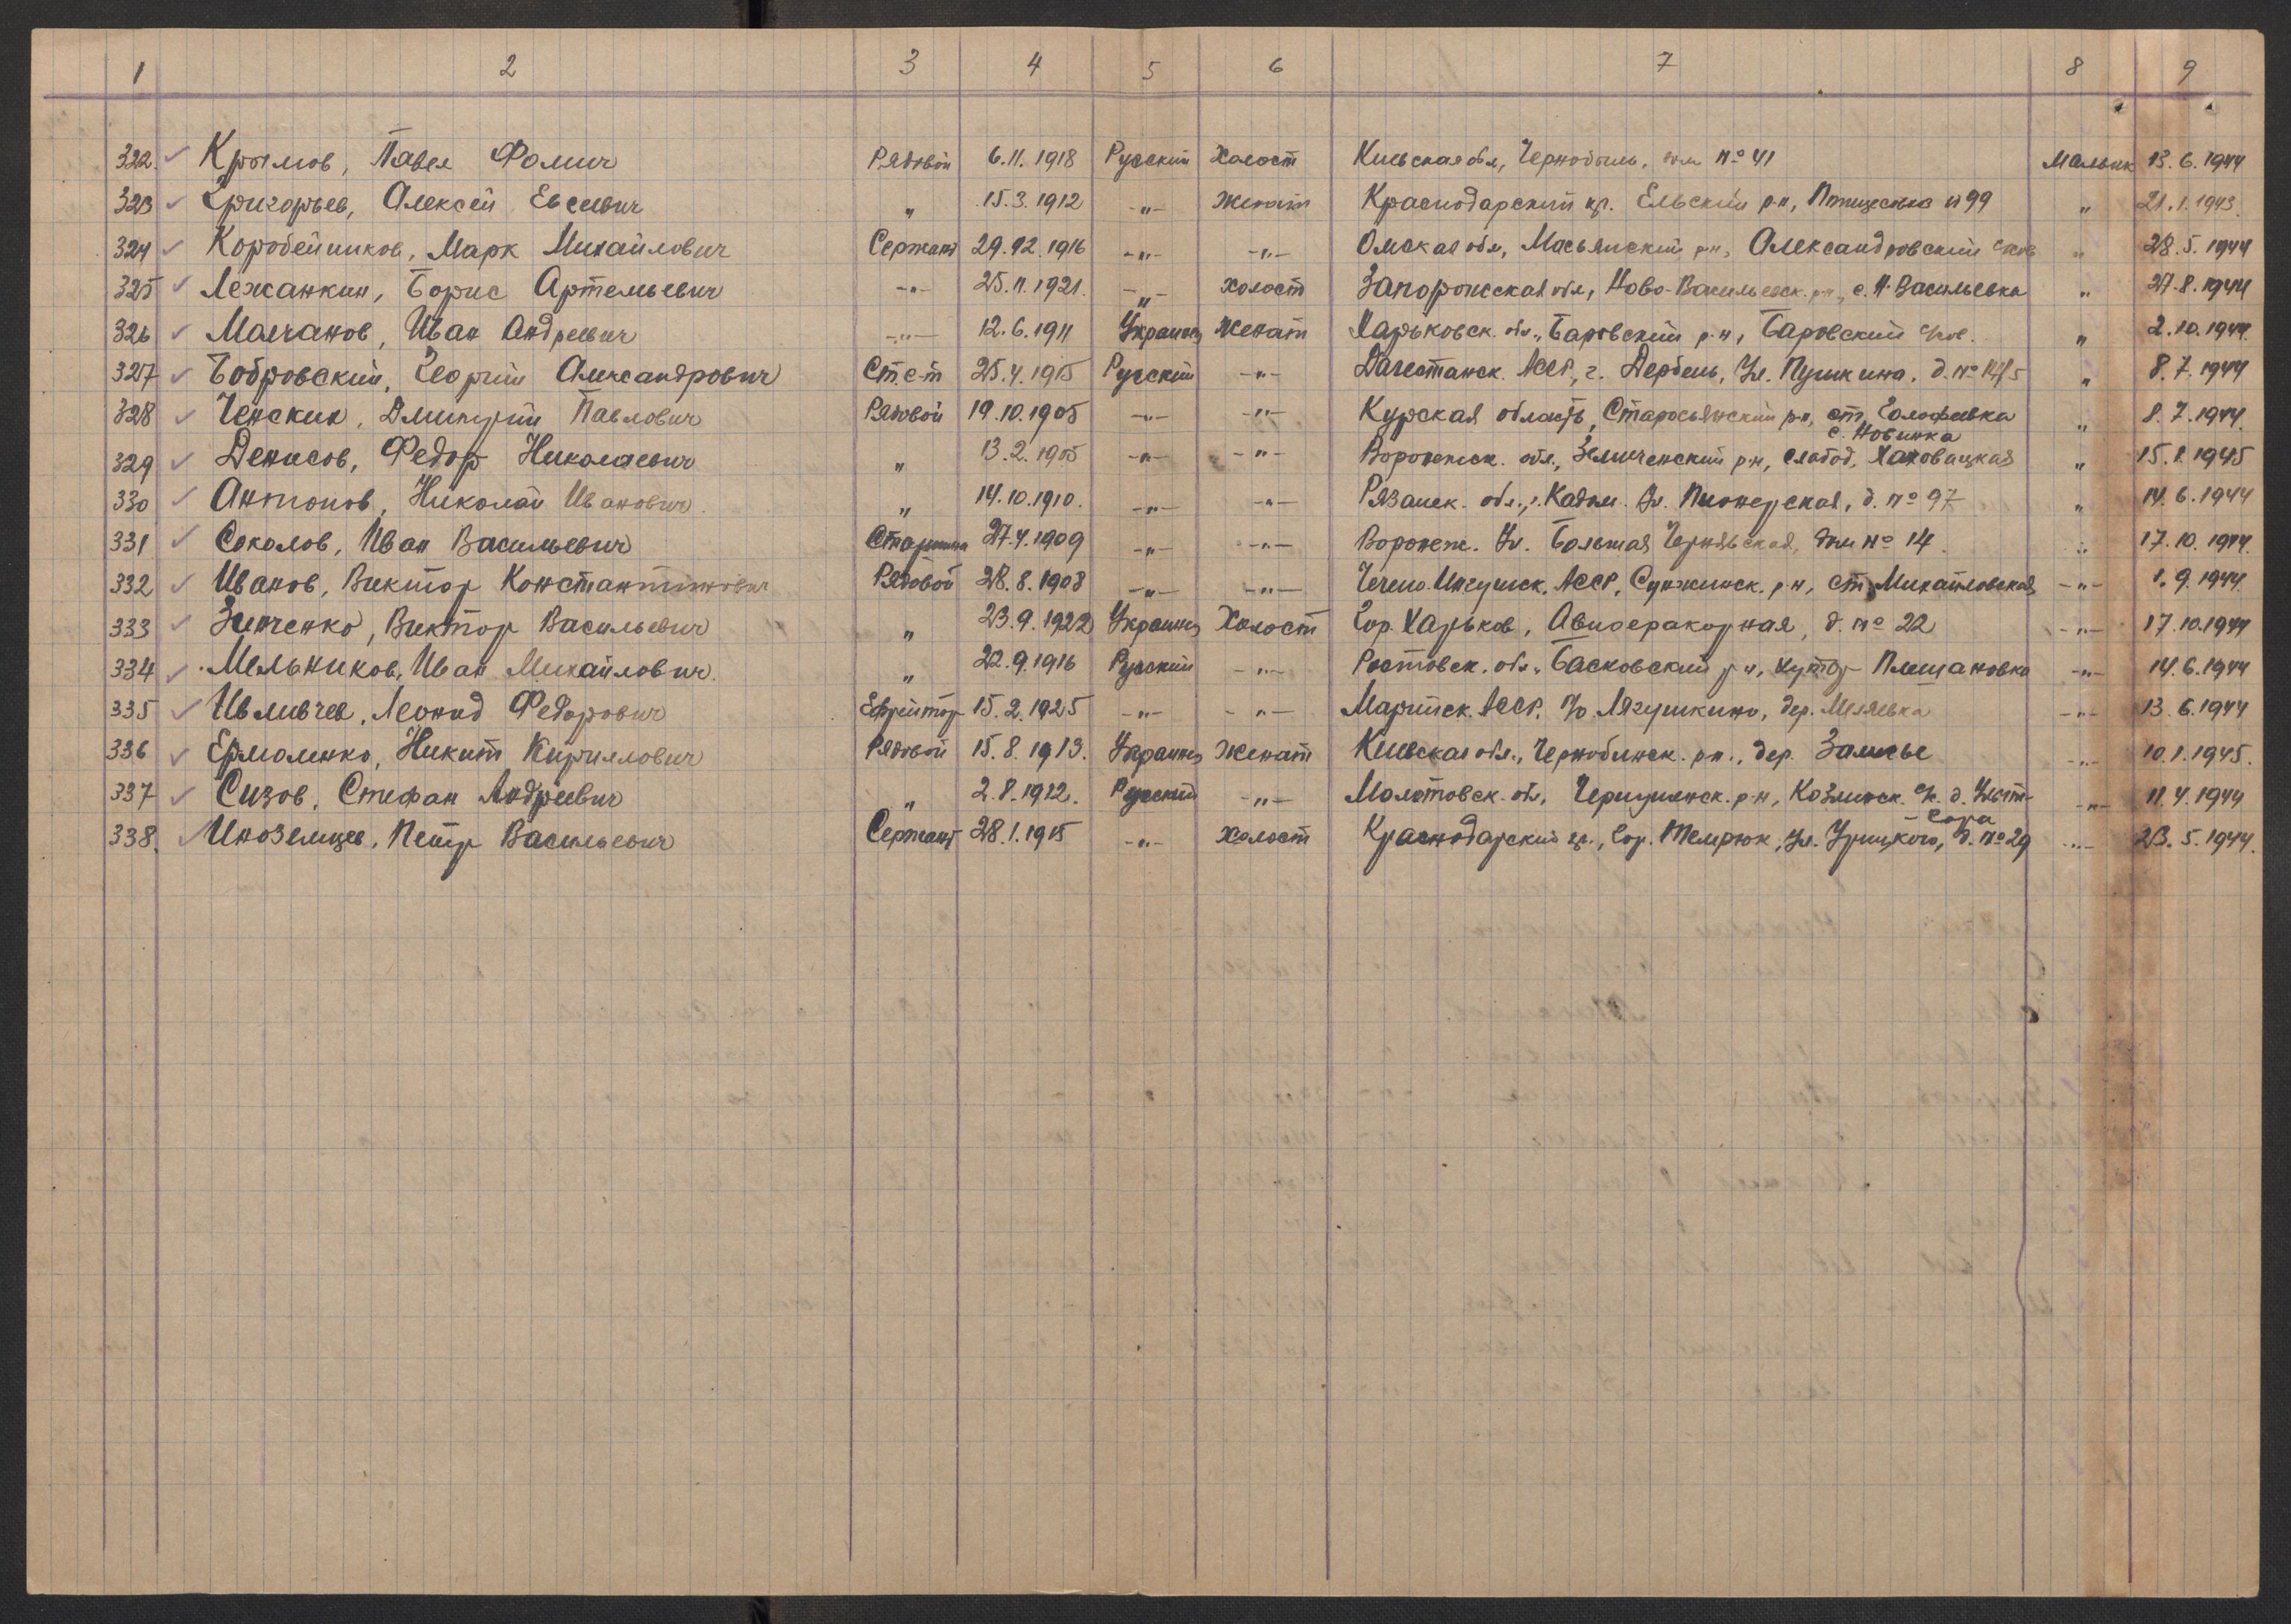 1 2 3 4 5 6 7 8 9
322. ✓ Крымов, Павел Фомич Рядовой 6.11.1918 Русский Холост Киевская обл, Чернобыль, дом №41 Мальмк 13.6.1944
323 ✓ Григорьев, Алексей Евсеевич „ 15.3.1912 -„- Женат Краснодарский кр. Ельский р-н, №99 „ 21.1.1943.
324 ✓ Коробейников, Марк Михайлович Сержант 29.12.1916 -„- -„- Омская обл, Масьянский рн, Александровский с/сов „ 28.5.1944
325 ✓ Лежанкин, Борис Артемьевич -„- 25.11.1921. -„- холост Запорожская обл, Ново-Васильевск. р-н, с. Н-Васильевка „ 27.8.1944
326 ✓ Малчанов, Иван Андреевич -„- 12.6.1911 Украинец Женат Харьковск. обл., Баровский р-н, Баровский с/сов. „ 2.10.1944.
327 ✓ Бобровский, Георгий Александрович Ст. с-т 25.4.1915 Русский -„- Дагестанск. АССР, г. Дербень, Ул. Пушкина, д. №14/5 „ 8.7.1944
328 ✓ Ченских, Дмитрий Павлович Рядовой 19.10.1905 -„- -„- Курская область, р-н, ст. Голофеевка „ 8.7.1944.
с. Новинка
329 ✓ Денисов, Федор Николаевич „ 13.2.1905 -„- -„- Воронежск. обл., р-н, слобод, „ 15.1.1945
330 ✓ Антонов, Николай Иванович. „ 14.10.1910. -„- -„- Рязанск. обл., г. Кадом. Ул. Пионерская, д. №97 „ 14.6.1944
331 ✓ Соколов, Иван Васильевич Старшина 27.4.1909 -„- -„- Воронеж. Ул. Большая Чернявская, дом №14. „ 17.10.1944.
332 ✓ Иванов, Виктор Константинович Рядовой 28.8.1908 -„- -„- Чечено-Ингушск. АССР, Сунженск. р-н, ст. Михайловская -„- 1.9.1944.
333 ✓ Зинченко, Виктор Васильевич „ 23.9.1922 Украинец Холост Гор. Харьков, д. №22 -„- 17.10.1944
334 ✓ Мельников, Иван Михайлович. „ 22.9.1916 Русский -„- Ростовск. обл., Басковский р-н, хутор Плешановка -„- 14.6.1944
335 ✓ Ивливчев, Леонид Федорович Ефрейтор 15.2.1925 -„- -„- Марийск. АССР, п/о Лягушкино, дер. -„- 13.6.1944
336 ✓ Ермоленко, Никит Кириллович Рядовой 15.8.1913. Украинец Женат Киевская обл., Чернобинск. рн., дер. Залесье -„- 10.1.1945.
337 ✓ Сизов, Стефан Андреевич „ 2.8.1912. Русский -„- Молотовск. обл, р-н, Козминск. с/с. д. Усть- -„- 11.4.1944
-Гора
338. ✓ Иноземцев, Петр Васильевич Сержант 28.1.1915 -„- холост Краснодарский кр., Гор. Темрюк, Ул. Урицкого, д. №29 -„- 23.5.1944.